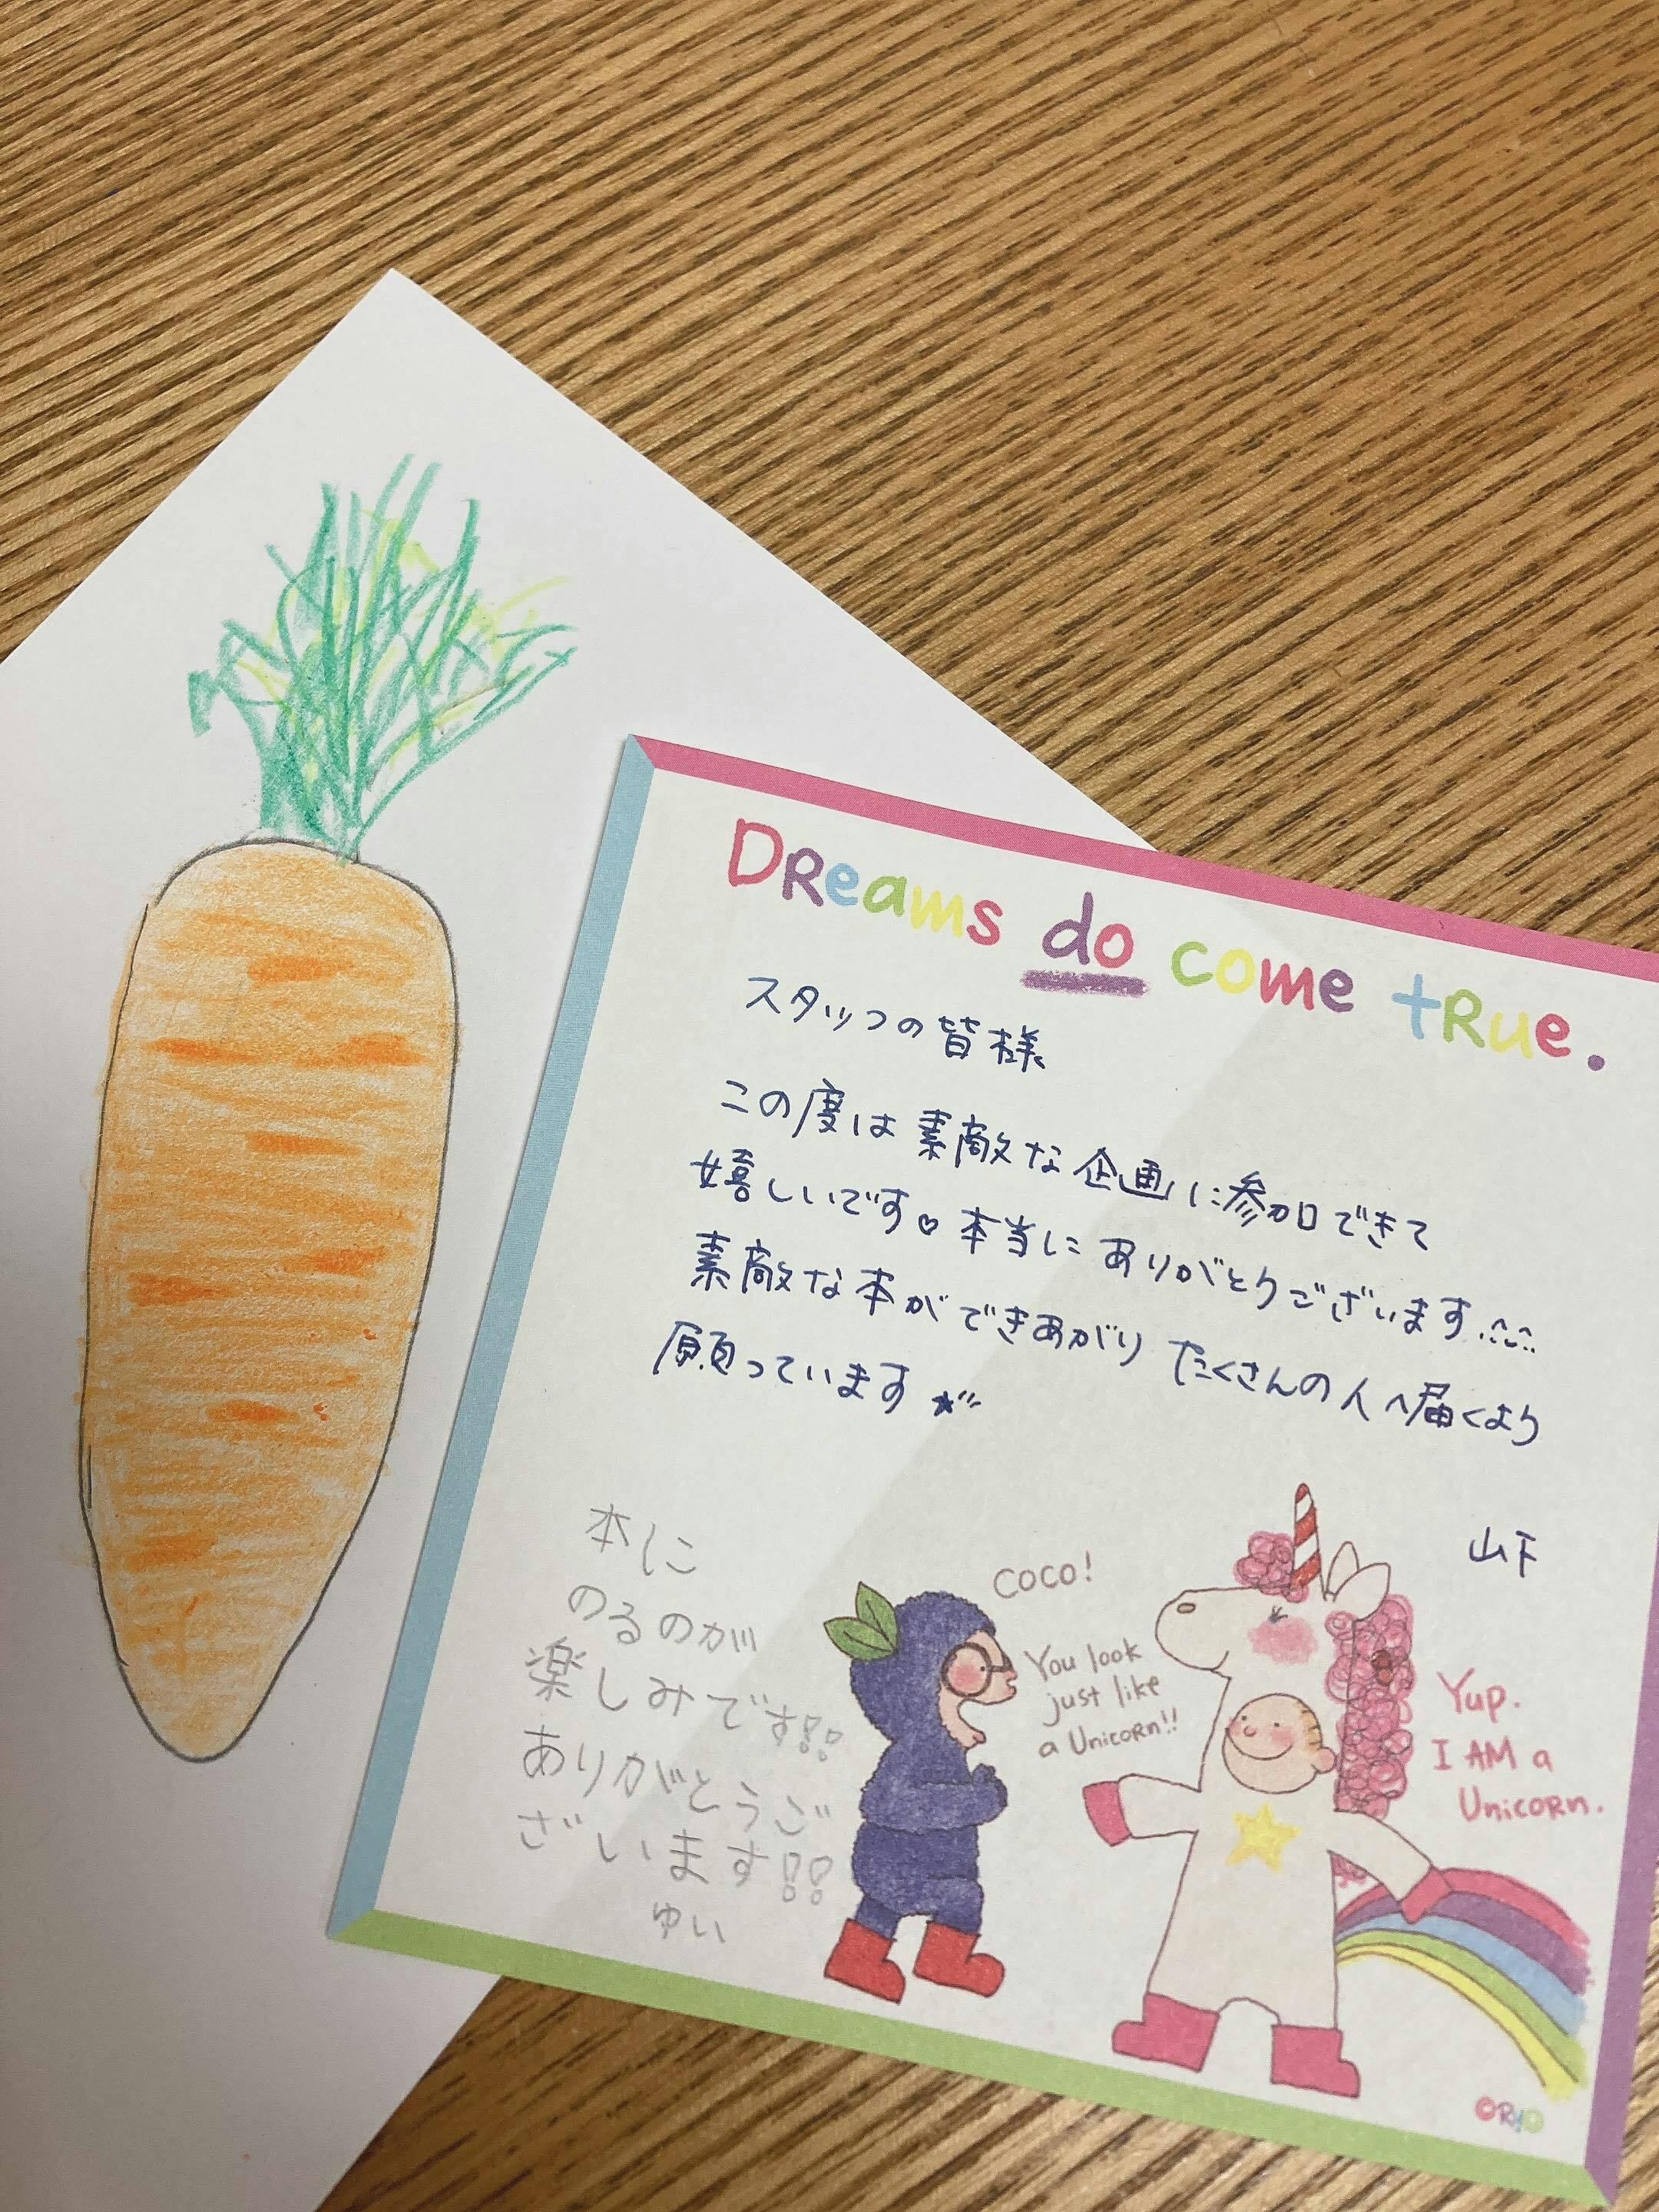 DReams do come tRue.
スタッフの皆様
この度は素敵な企画に参加できて
嬉しいです♡本当にありがとうございます^^
素敵な本ができあがりたくさんの人へ届くよう
願っています★
山下
本に
のるのが
楽しみです!!
ありがとうご
ざいます!!
ゆい
COCO!
You look
just like
a UnicoRn!!
Yup.
I AM a
UnicoRn.